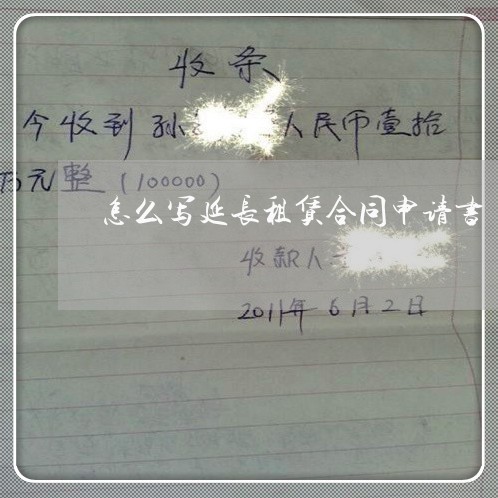 收条
今收到孙 人民币壹拾
万元整(100000)
怎么写延长租赁合同申请书
收款人
2011年6月2日